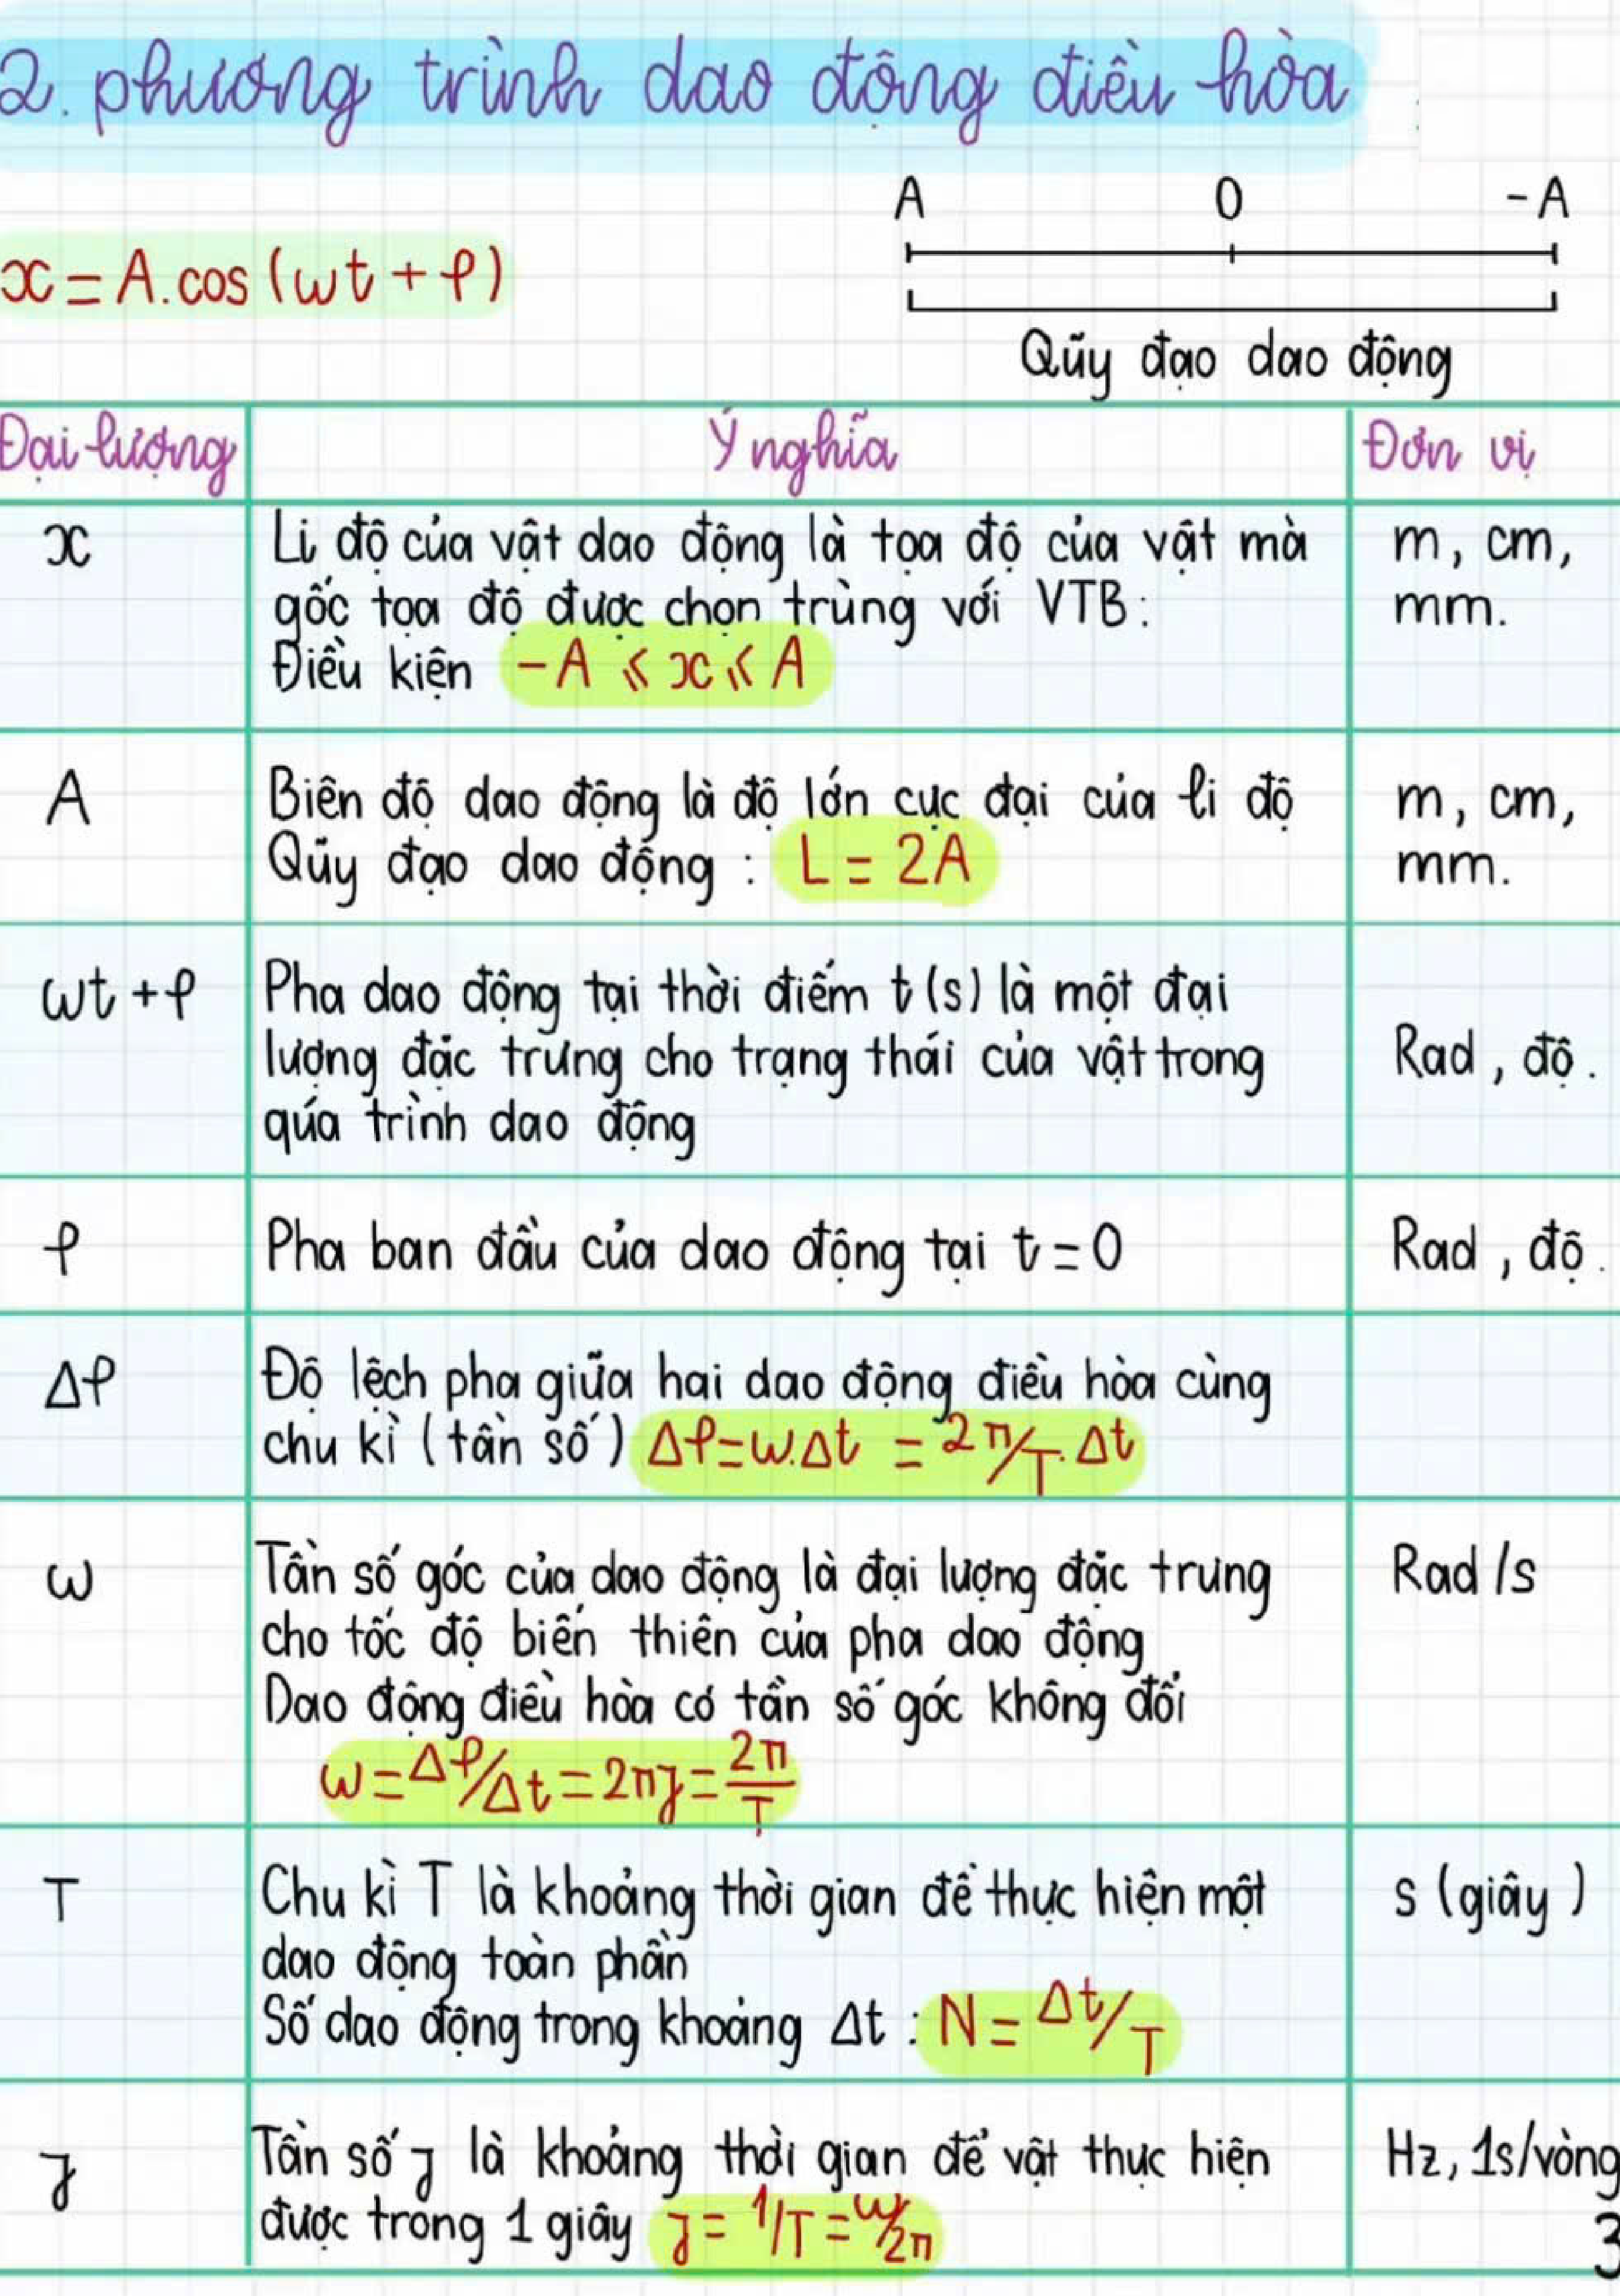 2. phương trình dao động điều hòa
A 0 -A
x = A.cos (ωt + φ)
Qũy đạo dao động
Đại lượng Ý nghĩa Đơn vị
x Li độ của vật dao động là tọa độ của vật mà m, cm,
gốc tọa độ được chọn trùng với VTB: mm.
Điều kiện -A ⩽ x ⩽ A
A Biên độ dao động là độ lớn cực đại của li độ m, cm,
Qũy đạo dao động : L = 2A mm.
ωt + φ Pha dao động tại thời điểm t (s) là một đại
lượng đặc trưng cho trạng thái của vật trong Rad, độ.
qúa trình dao động
φ Pha ban đầu của dao động tại t = 0 Rad, độ.
Δφ Độ lệch pha giữa hai dao động điều hòa cùng
chu kì (tần số) Δφ = ω.Δt = 2π/T.Δt
ω Tần số góc của dao động là đại lượng đặc trưng Rad/s
cho tốc độ biến thiên của pha dao động
Dao động điều hòa có tần số góc không đổi
ω = Δφ/Δt = 2πf = 2π/T
T Chu kì T là khoảng thời gian để thực hiện một s (giây)
dao động toàn phần
Số dao động trong khoảng Δt : N = Δt/T
f Tần số f là khoảng thời gian để vật thực hiện Hz, 1s/vòng
được trong 1 giây f = 1/T = ω/2π
3